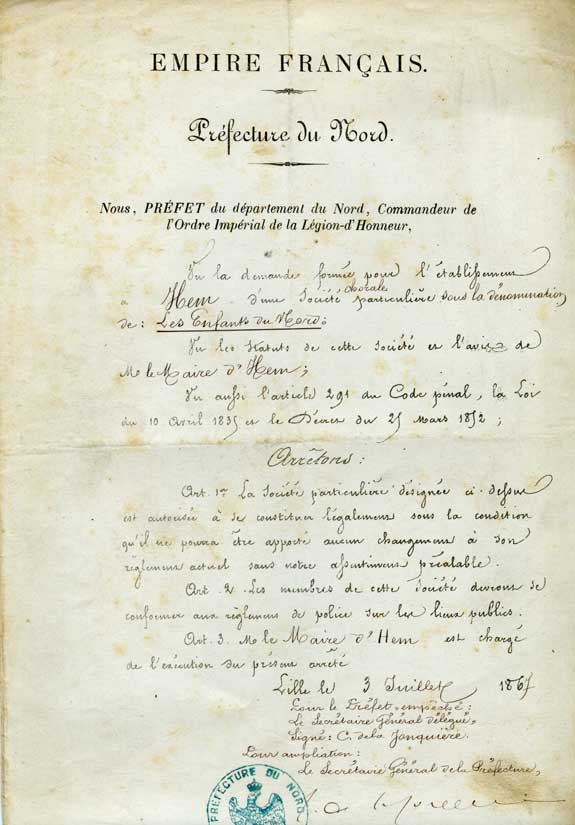 EMPIRE FRANÇAIS.
Préfecture du Nord.
Nous, PRÉFET du département du Nord, Commandeur de
l'Ordre Impérial de la Légion-d'Honneur,
Vu la demande formée pour l'établissement
à Hem d'une Société chorale particulière sous la dénomination
de : Les Enfants du Nord ;
Vu les Statuts de cette société et l'avis de
M. le Maire d'Hem ;
Vu aussi l'article 291 du Code pénal, la Loi
du 10 Avril 1835 et le Décret du 25 Mars 1852 ;
Arrêtons :
Art. 1er La Société particulière désignée ci-dessus
est autorisée à se constituer légalement sous la condition
qu'il ne pourra être apporté aucun changement à son
règlement actuel sans notre assentiment préalable.
Art. 2. Les membres de cette Société devront se
conformer aux règlemens de police sur les lieux publics.
Art. 3. M. le Maire d'Hem est chargé
de l'exécution du présent arrêté
Lille le 3 Juillet 1867
Pour le Préfet empêché :
Le Secrétaire Général délégué,
Signé : C. de la Jonquière.
Pour ampliation :
Le Secrétaire Général de la Préfecture,
PREFECTURE DU NORD